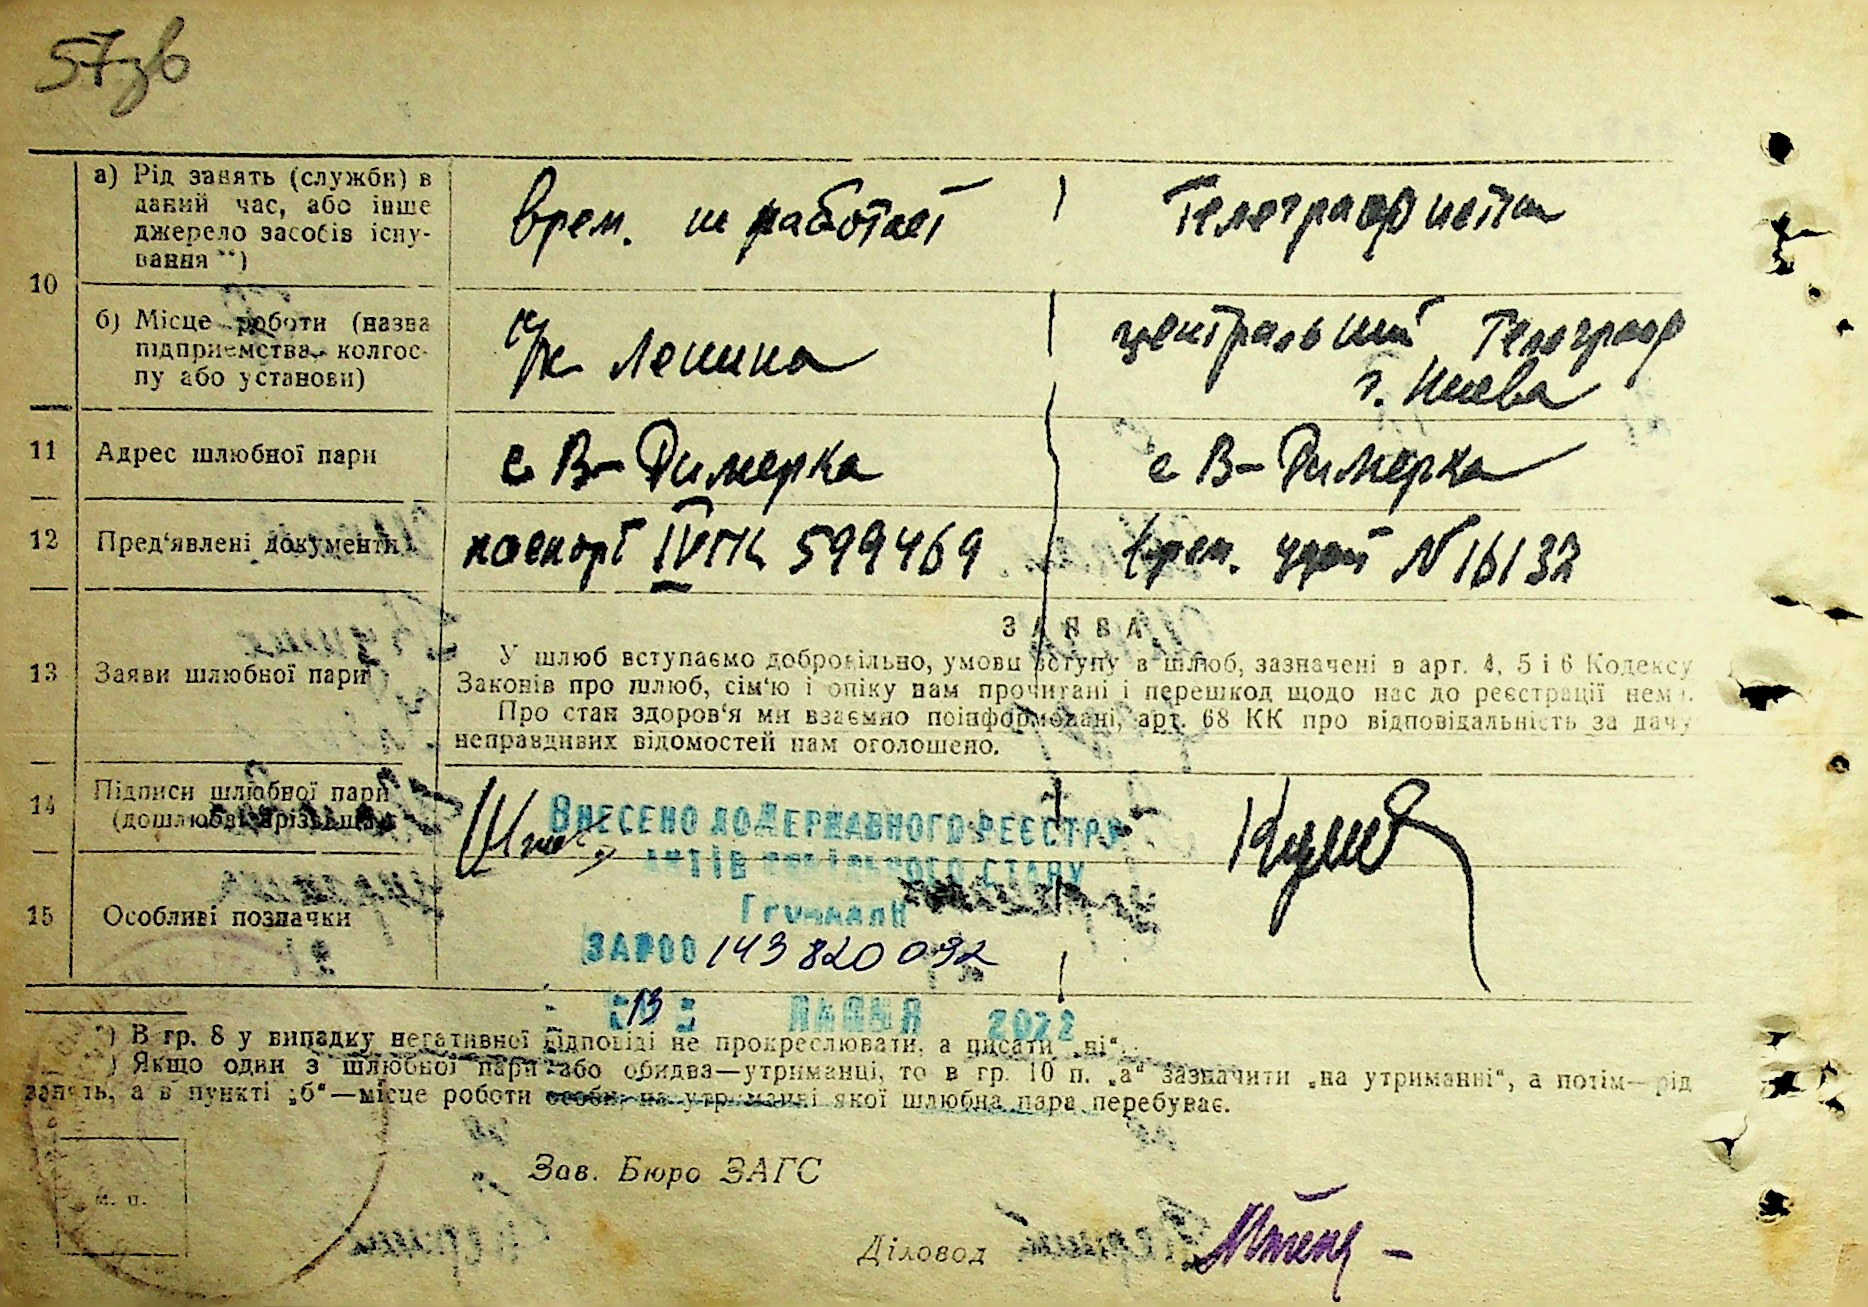 57зв
10
а) Рід занять (службн) в
даний час, або інше
джерело засобів існу-
вання **)
врем. не работает
Телеграфистка
б) Місце роботи (назва
підприємства, колгос-
пу або установи)
к/к Ленина
центральный Телеграф
г. Киева
11 Адрес шлюбної пари
с В-Дымерка
с В-Дымерка
12 Пред'явлені документи
паспорт IV 599469
врем. удост N 16132
13 Заяви шлюбної пари
ЗАЯВА
У шлюб вступаємо добровільно, умови вступу в шлюб, зазначені в арт. 4, 5 і 6 Кодексу
Законів про шлюб, сім'ю і опіку нам прочитані і перешкод щодо нас до реєстрації нема.
Про стан здоров'я ми взаємно поінформовані, арт. 68 КК про відповідальність за дачу
неправдивих відомостей нам оголошено.
14 Підписи шлюбної пари
(дошлюбні прізвища)
ВНЕСЕНО ДО ДЕРЖАВНОГО РЕЄСТРУ
АКТІВ ЦИВІЛЬНОГО СТАНУ
ГРОМАДЯН
15 Особливі позначки
ЗА №00 143 820 092
13 ЛИПНЯ 2022
*) В гр. 8 у випадку негативної відповіді не прокреслювати, а писати „ні“.
) Якщо один з шлюбної пари або обидва—утриманці, то в гр. 10 п. „а“ зазначити „на утриманні“, а потім—рід
занять, а в пункті „б“—місце роботи особи, на утриманні якої шлюбна пара перебуває.
М. П.
Зав. Бюро ЗАГС
Діловод